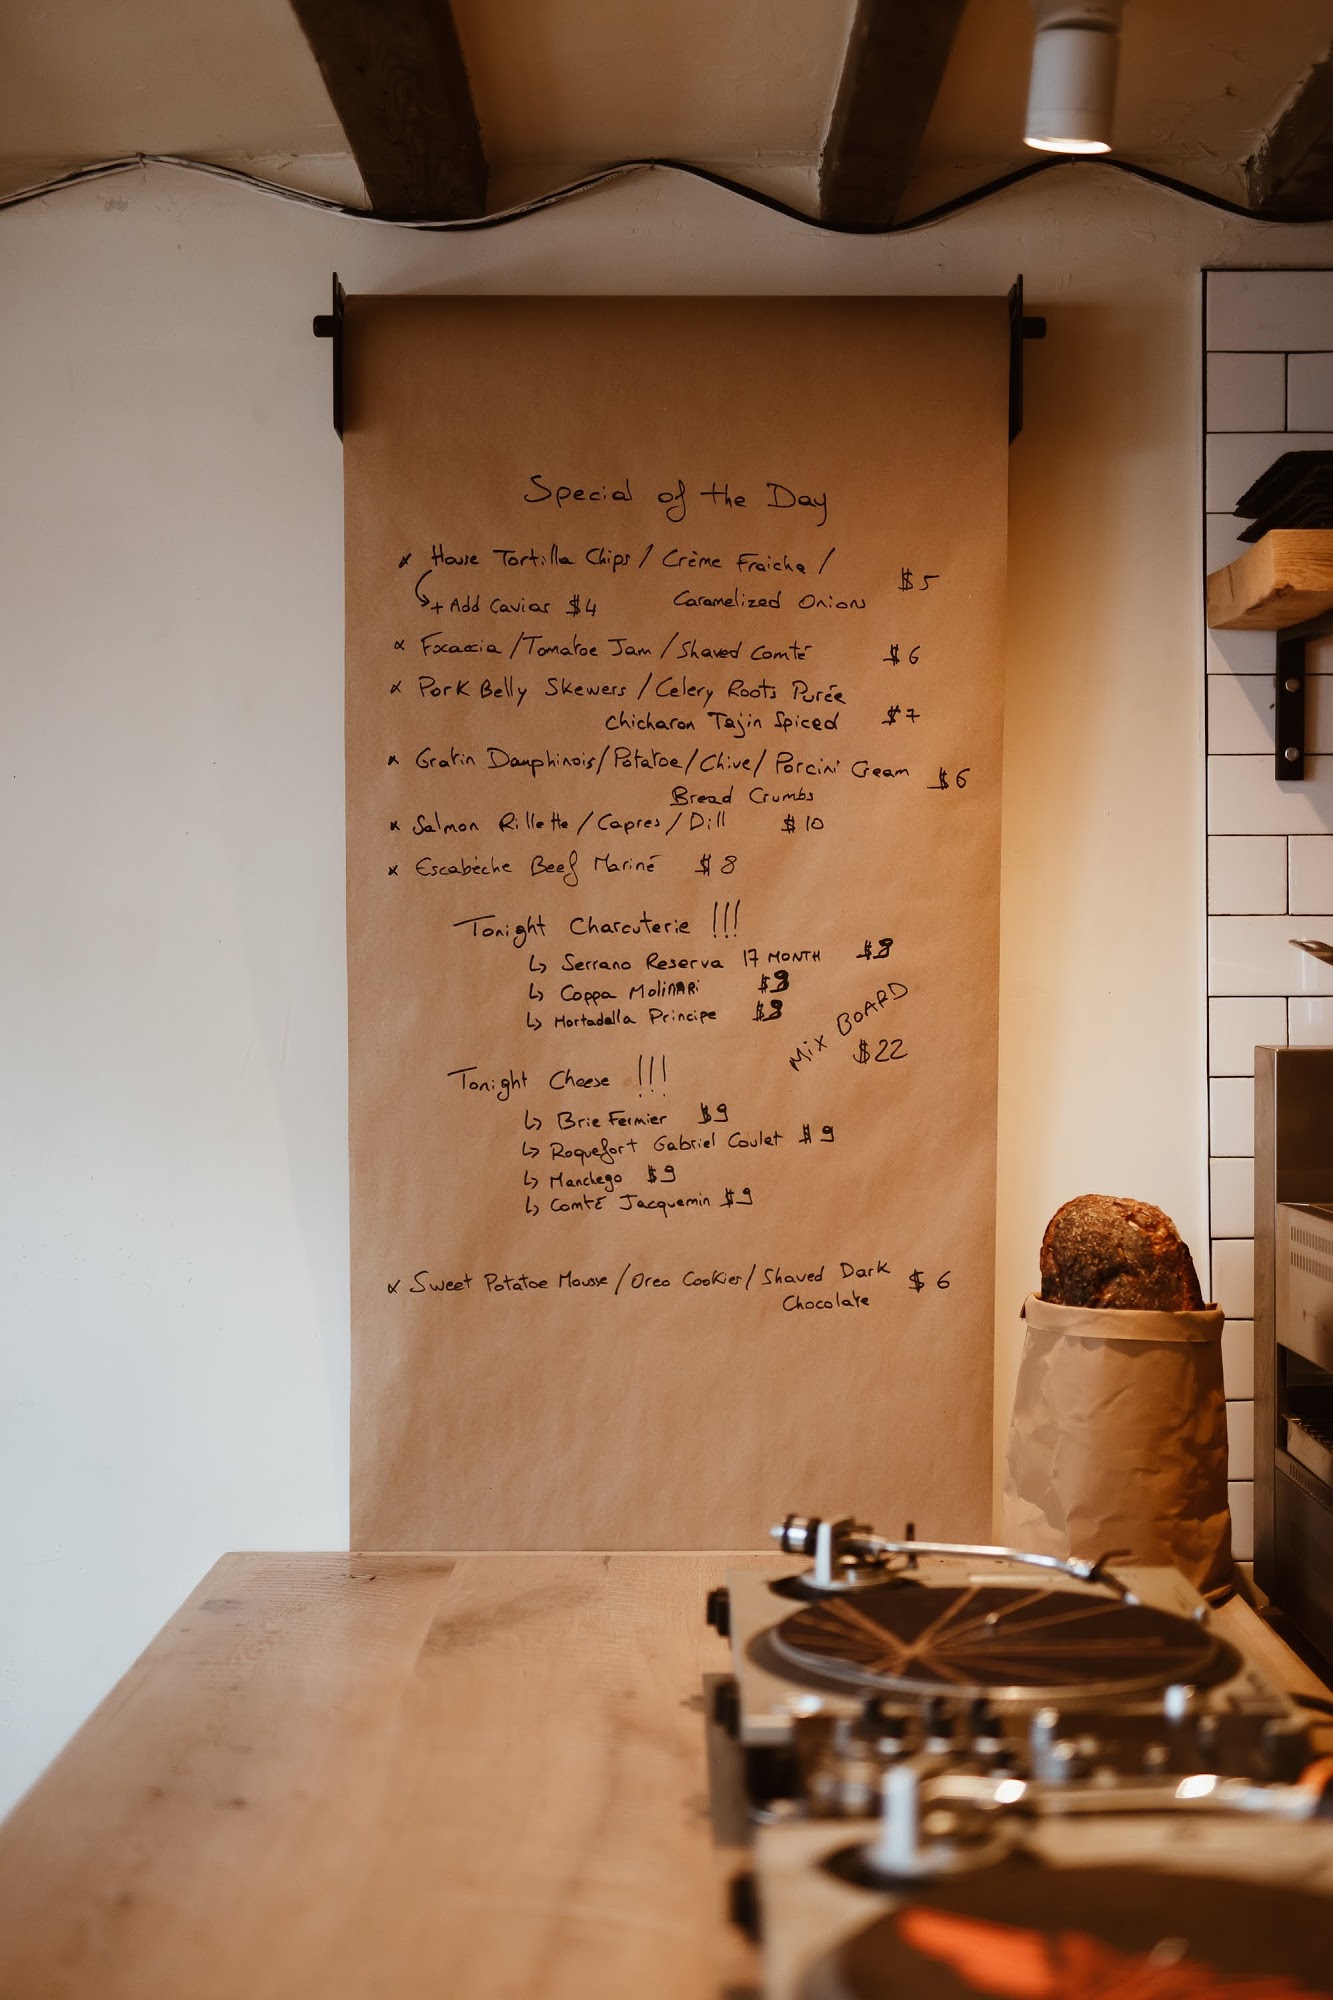 Special of the Day
x House Tortilla Chips / Crème Fraiche /
$5
+ Add Caviar $4 Caramelized Onions
x Focaccia / Tomatoe Jam / Shaved Comté $6
x Pork Belly Skewers / Celery Roots Purée
Chicharon Tajin Spiced $7
x Gratin Dauphinois / Potatoe / Chive / Porcini Cream $6
Bread Crumbs
x Salmon Rillette / Capres / Dill $10
x Escabèche Beef Mariné $8
Tonight Charcuterie !!!
↳ Serrano Reserva 17 MONTH
↳ Coppa Molinari
↳ Mortadella Principe
MIX BOARD
$22
Tonight Cheese !!!
↳ Brie Fermier $9
↳ Roquefort Gabriel Coulet $9
↳ Manchego $9
↳ Comté Jacquemin $9
x Sweet Potatoe Mousse / Oreo Cookies / Shaved Dark $6
Chocolate